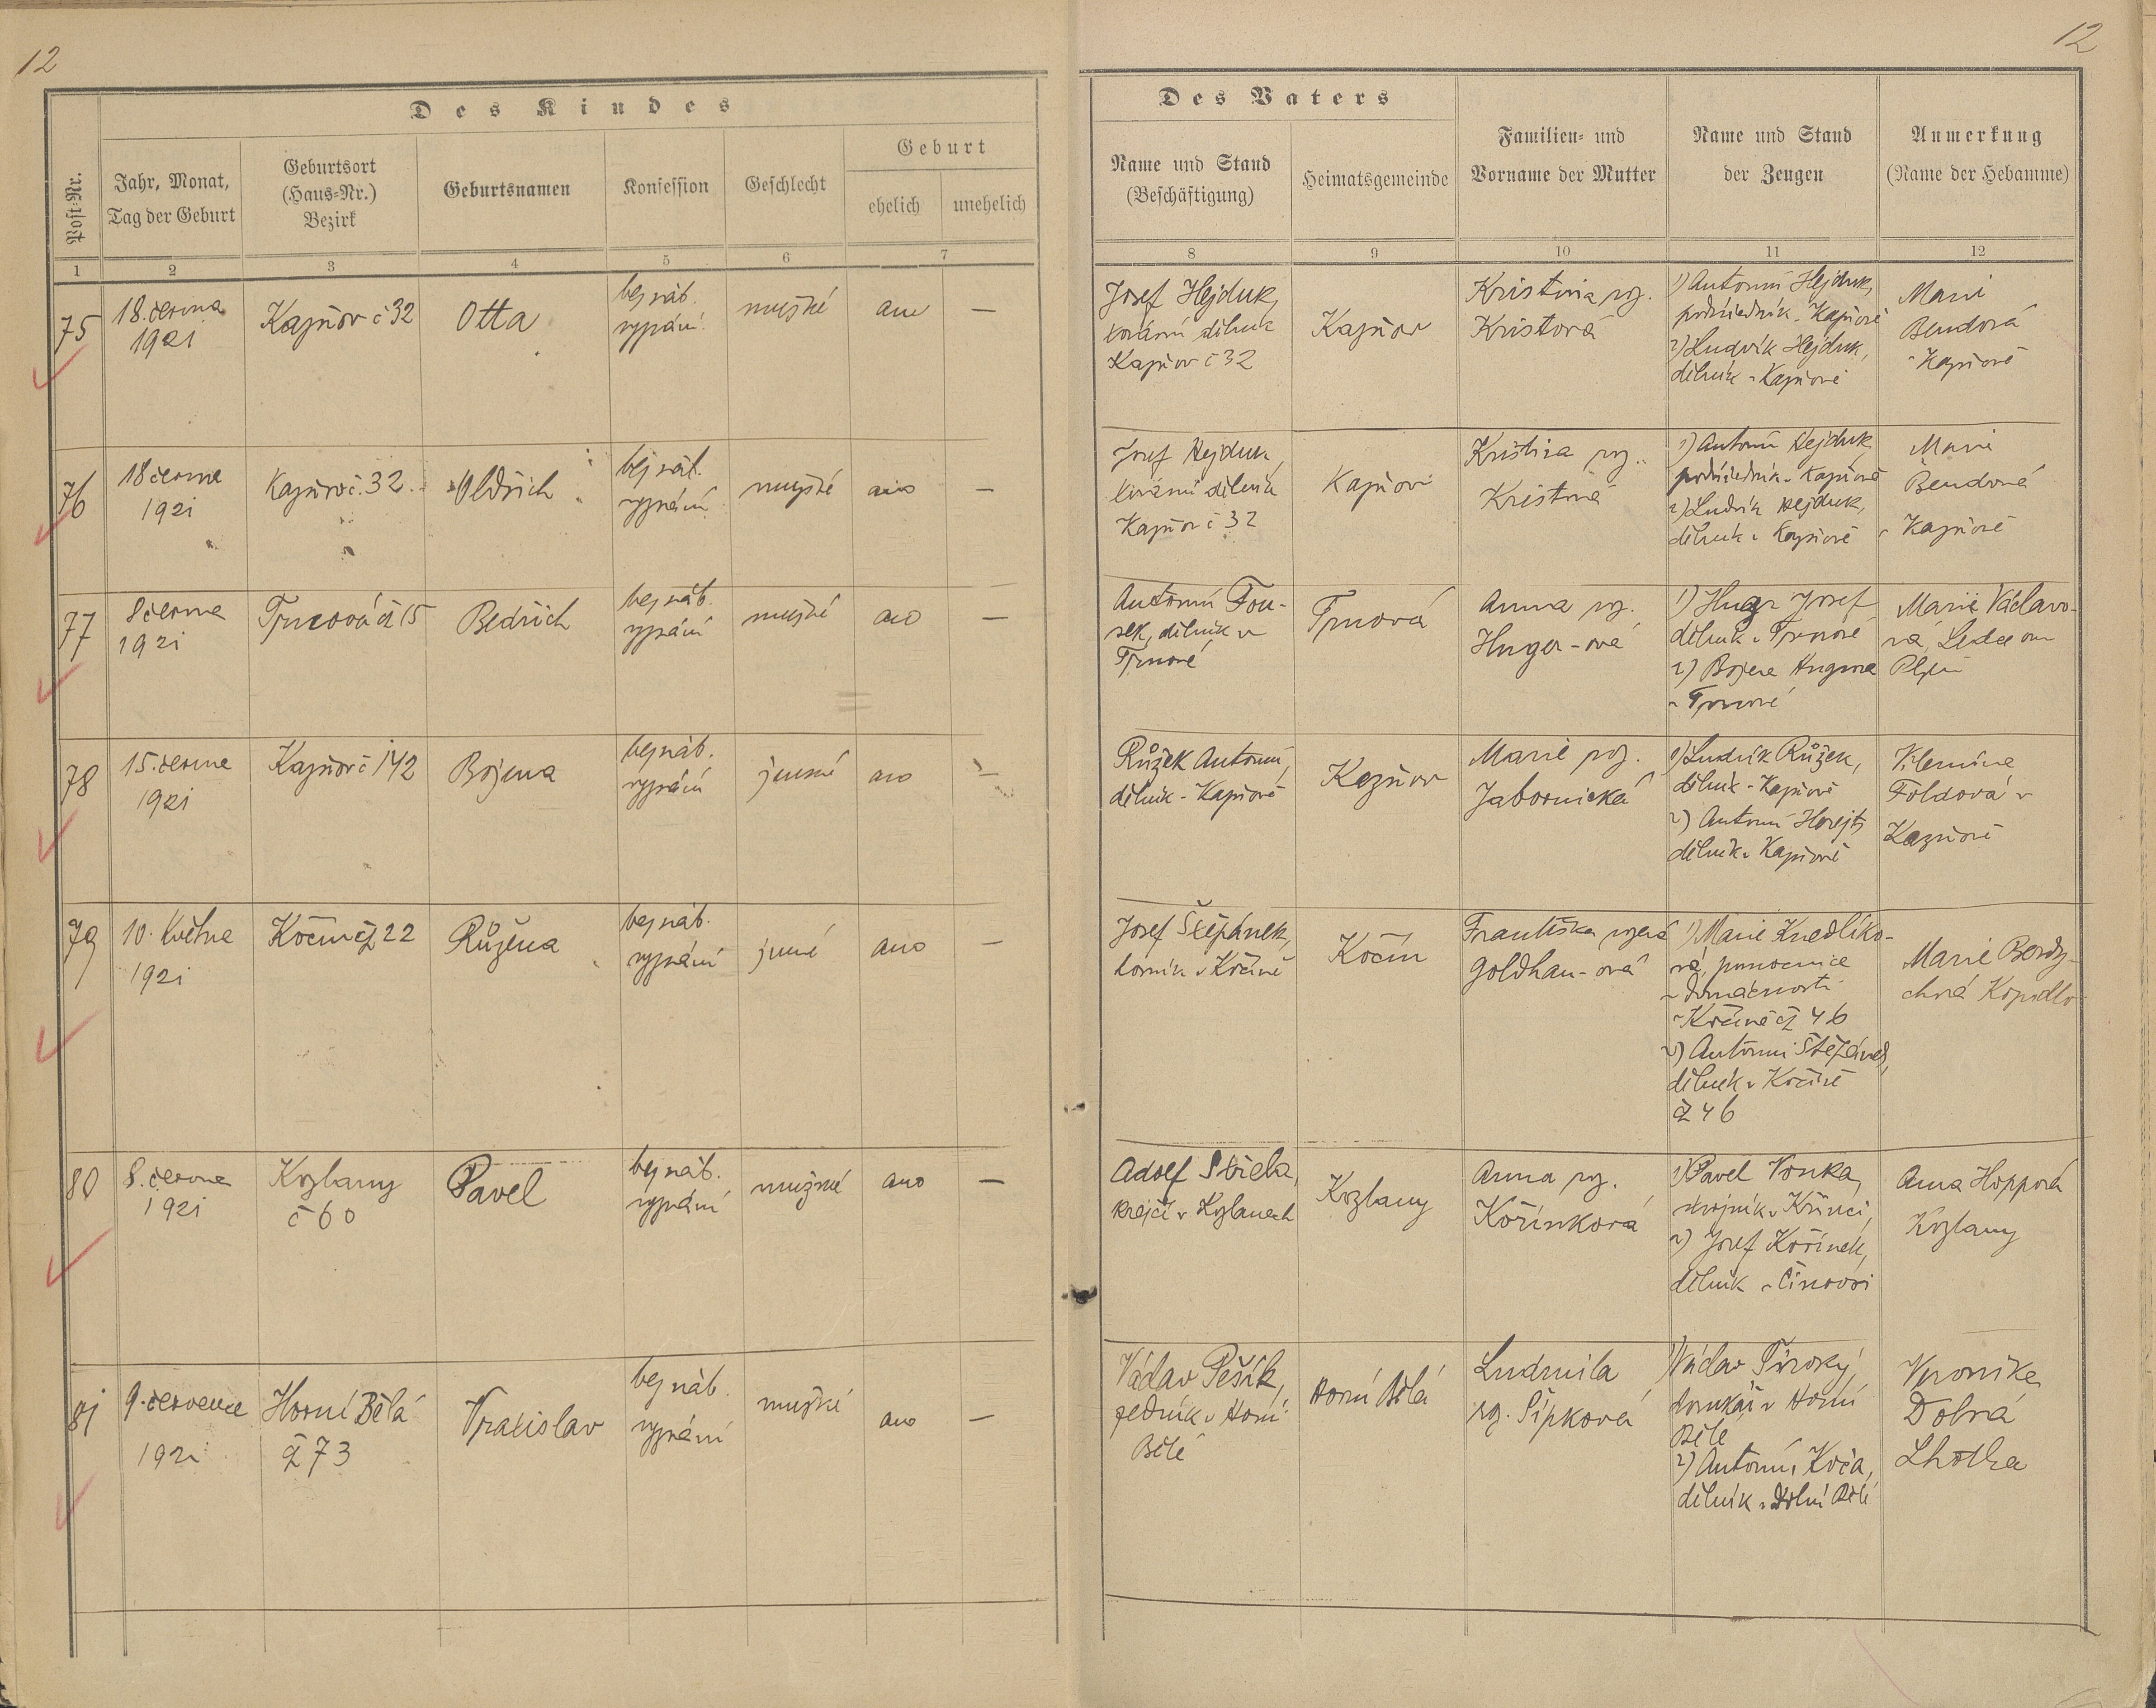 12
12
Des Kindes
Des Vaters
Post-Nr.
Jahr, Monat,
Tag der Geburt
Geburtsort
(Haus-Nr.)
Bezirk
Geburtsnamen
Konfession
Geschlecht
Geburt
ehelich
unehelich
Name und Stand
(Beschäftigung)
Heimatsgemeinde
Familien- und
Vorname der Mutter
Name und Stand
der Zeugen
Anmerkung
(Name der Hebamme)
1 2 3 4 5 6 7 8 9 10 11 12
75
18. června
1921
Kazňov č 32
Otta
bez náb.
vyznání
mužské
ano
—
Josef Hejduk,
továrni dělník
Kazňov č 32
Kazňov
Kristina roz.
Kristová
1) Antonín Hejduk,
podúředník v Kazňově
2) Ludvík Hejduk,
dělník v Kazňově
Marie
Bendová
v Kazňově
76
18 června
1921
Kazňov č. 32
Oldřich
bez náb.
vyznání
mužské
ano
—
Josef Hejduk,
tovární dělník
Kazňov č 32
Kazňov
Kristina roz.
Kristová
1) Antonín Hejduk
podúředník v Kazňově
2) Ludvík Hejduk,
dělník v Kazňově
Marie
Bendová
v Kazňově
77
8 června
1921
Trnová č 15
Bedřich
bez náb.
vyznání
mužské
ano
—
Antonín Fou-
sek, dělník v
Trnové
Trnová
Anna roz.
Huger-ová
1) Hugr Josef
dělník v Trnové
2) Božena Hugrova
v Trnové
Marie Václavo-
vá, Ledce ou
Plzeň
78
15. června
1921
Kazňov č 142
Božena
bez náb.
vyznání
ženské
ano
—
Růžek Antonín,
dělník v Kazňově
Kazňov
Marie roz.
Jabornická
1) Ludvík Růžek,
dělník v Kazňově
2) Antonín Horejš
dělník v Kazňově
Földová v
Kazňově
79
10. Května
1921
Kočín čp 22
Růžena
bez náb.
vyznání
žené
ano
—
Josef Štěpánek,
horník v Kočíně
Kočín
Františka rozená
Goldhan-ová
1) Marie Knedlíko-
vá, pomocnice
v domácnosti
v Kočíně čp 46
2) Antonín Štěpánek,
dělník v Kočíně
č 46
Marie Bordy-
chová Kopidlo
80
8. června
1921
Kozlany
č 60
Pavel
bez náb.
vyznání
mužské
ano
—
Adolf Střela,
krejčí v Kozlanech
Kozlany
Anna roz.
Kořínková
1) Pavel Vonka,
strojník v Křinci,
2) Josef Kořínek,
dělník v Čínově
Anna Hoppová
Kozlany
81
9. července
1921
Horní Bělá
č 73
Vratislav
bez náb.
vyznání
mužské
ano
—
Václav Pešík,
zedník v Horní
Bělé
Horní Bělá
Ludmila
roz. Šípková
1) Václav Široký,
domkář v Horní
Bělé
2) Antonín Koča,
dělník v Dolní Bělé
Veronika
Dobrá
Lhotka